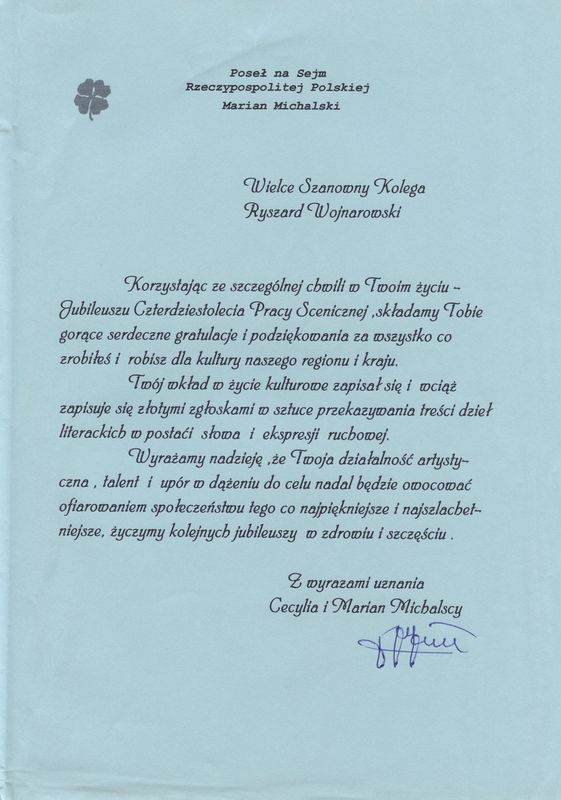 Poseł na Sejm
Rzeczypospolitej Polskiej
Marian Michalski
Wielce Szanowny Kolega
Ryszard Wojnarowski
Korzystając ze szczególnej chwili w Twoim życiu -
Jubileuszu Czterdziestolecia Pracy Scenicznej ,składamy Tobie
gorące serdeczne gratulacje i podziękowania za wszystko co
zrobiłeś i robisz dla kultury naszego regionu i kraju.
Twój wkład w życie kulturowe zapisał się i wciąż
zapisuje się złotymi zgłoskami w sztuce przekazywania treści dzieł
literackich w postaći słowa i ekspresji ruchowej.
Wyrażamy nadzieję ,że Twoja działalność artysty-
czna , talent i upór w dążeniu do celu nadal będzie owocować
ofiarowaniem społeczeństwu tego co najpiękniejsze i najszlachet-
niejsze, życzymy kolejnych jubileuszy w zdrowiu i szczęściu .
Z wyrazami uznania
Cecylia i Marian Michalscy